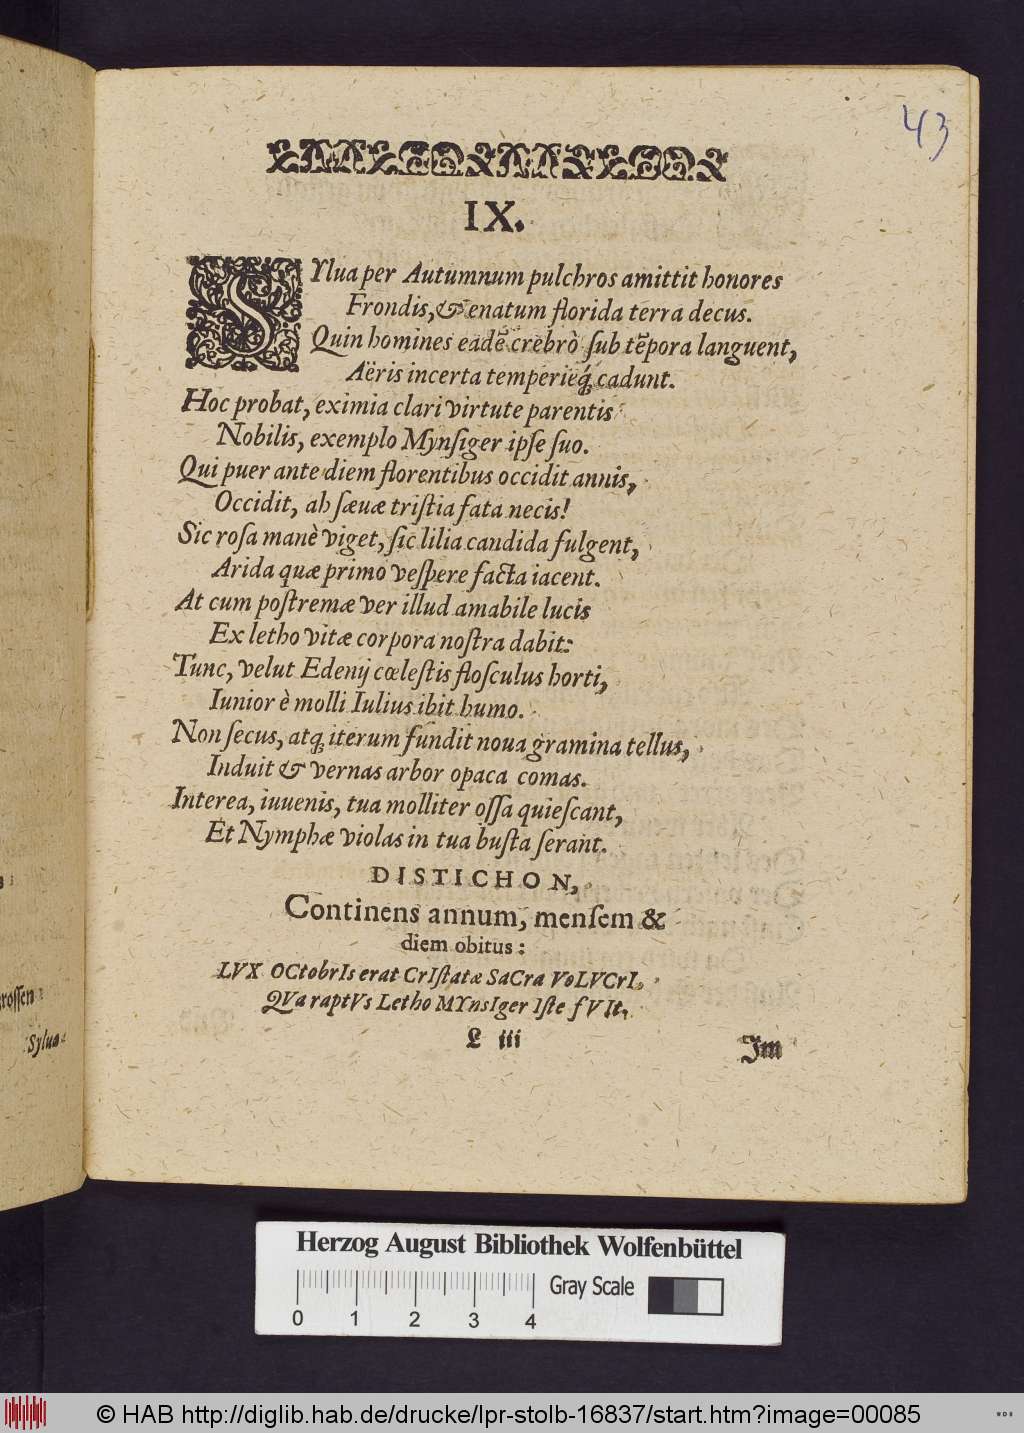 43
IX.
SYlua per Autumnum pulchros amittit honores
Frondis, & enatum florida terra decus.
Quin homines eadē crebrò ſub tēpora languent,
Aëris incerta temperieq́; cadunt.
Hoc probat, eximia clari virtute parentis
Nobilis, exemplo Mynſiger ipſe ſuo.
Qui puer ante diem florentibus occidit annis,
Occidit, ah ſæuæ triſtia fata necis!
Sic roſa manè viget, ſic lilia candida fulgent,
Arida quæ primo veſpere facta iacent.
At cum poſtremæ ver illud amabile lucis
Ex letho vitæ corpora noſtra dabit:
Tunc, velut Edenij cœleſtis floſculus horti,
Iunior è molli Iulius ibit humo.
Non ſecus, atq; iterum fundit noua gramina tellus,
Induit & vernas arbor opaca comas.
Interea, iuuenis, tua molliter oſſa quieſcant,
Et Nymphæ violas in tua buſta ſerant.
DISTICHON,
Continens annum, menſem &
diem obitus:
LVX OCtobrIs erat CrIſtatæ SaCra VoLVCrI,
QVa raptVs Letho MYnsIger Iſte fVIt.
L iii
Im
roſſen
Sylua
Herzog August Bibliothek Wolfenbüttel
Gray Scale
0 1 2 3 4
© HAB http://diglib.hab.de/drucke/lpr-stolb-16837/start.htm?image=00085